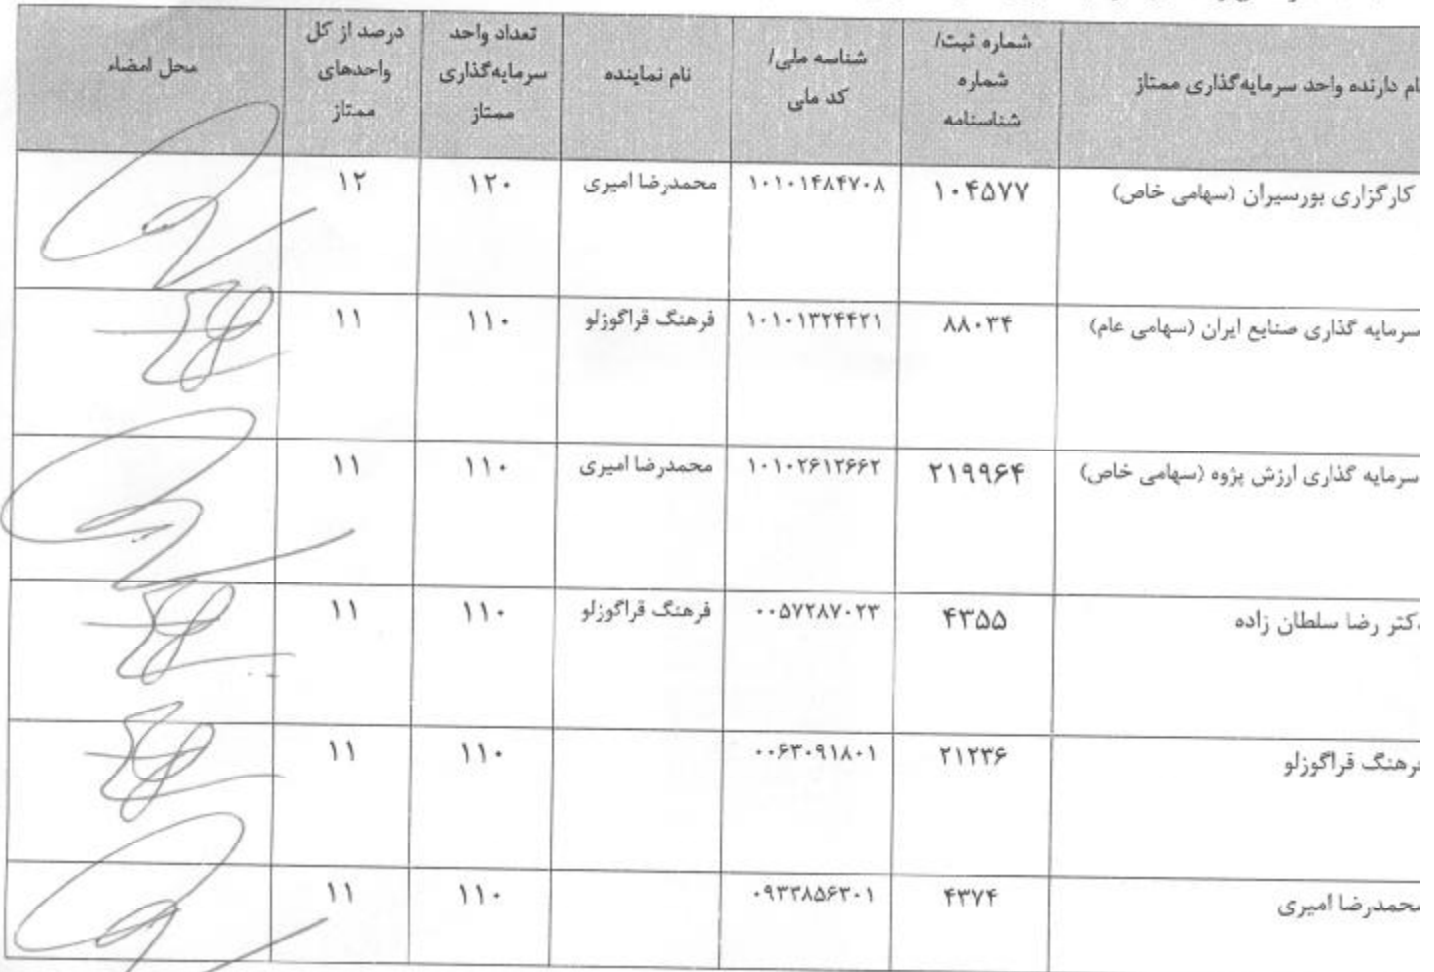 نام دارنده واحد سرمایه‌گذاری ممتاز شماره ثبت/ شماره شناسنامه شناسه ملی/ کد ملی نام نماینده تعداد واحد سرمایه‌گذاری ممتاز درصد از کل واحدهای ممتاز محل امضاء
کارگزاری بورسیران (سهامی خاص) ۱۰۴۵۷۷ ۱۰۱۰۱۴۸۴۷۰۸ محمدرضا امیری ۱۲۰ ۱۲
سرمایه گذاری صنایع ایران (سهامی عام) ۸۸۰۳۴ ۱۰۱۰۱۳۲۴۴۲۱ فرهنگ قراگوزلو ۱۱۰ ۱۱
سرمایه گذاری ارزش پژوه (سهامی خاص) ۲۱۹۹۶۴ ۱۰۱۰۲۶۱۲۶۶۲ محمدرضا امیری ۱۱۰ ۱۱
دکتر رضا سلطان زاده ۴۳۵۵ ۰۰۵۷۲۸۷۰۲۳ فرهنگ قراگوزلو ۱۱۰ ۱۱
فرهنگ قراگوزلو ۲۱۲۳۶ ۰۰۶۳۰۹۱۸۰۱ ۱۱۰ ۱۱
محمدرضا امیری ۴۳۷۴ ۰۹۳۳۸۵۶۳۰۱ ۱۱۰ ۱۱